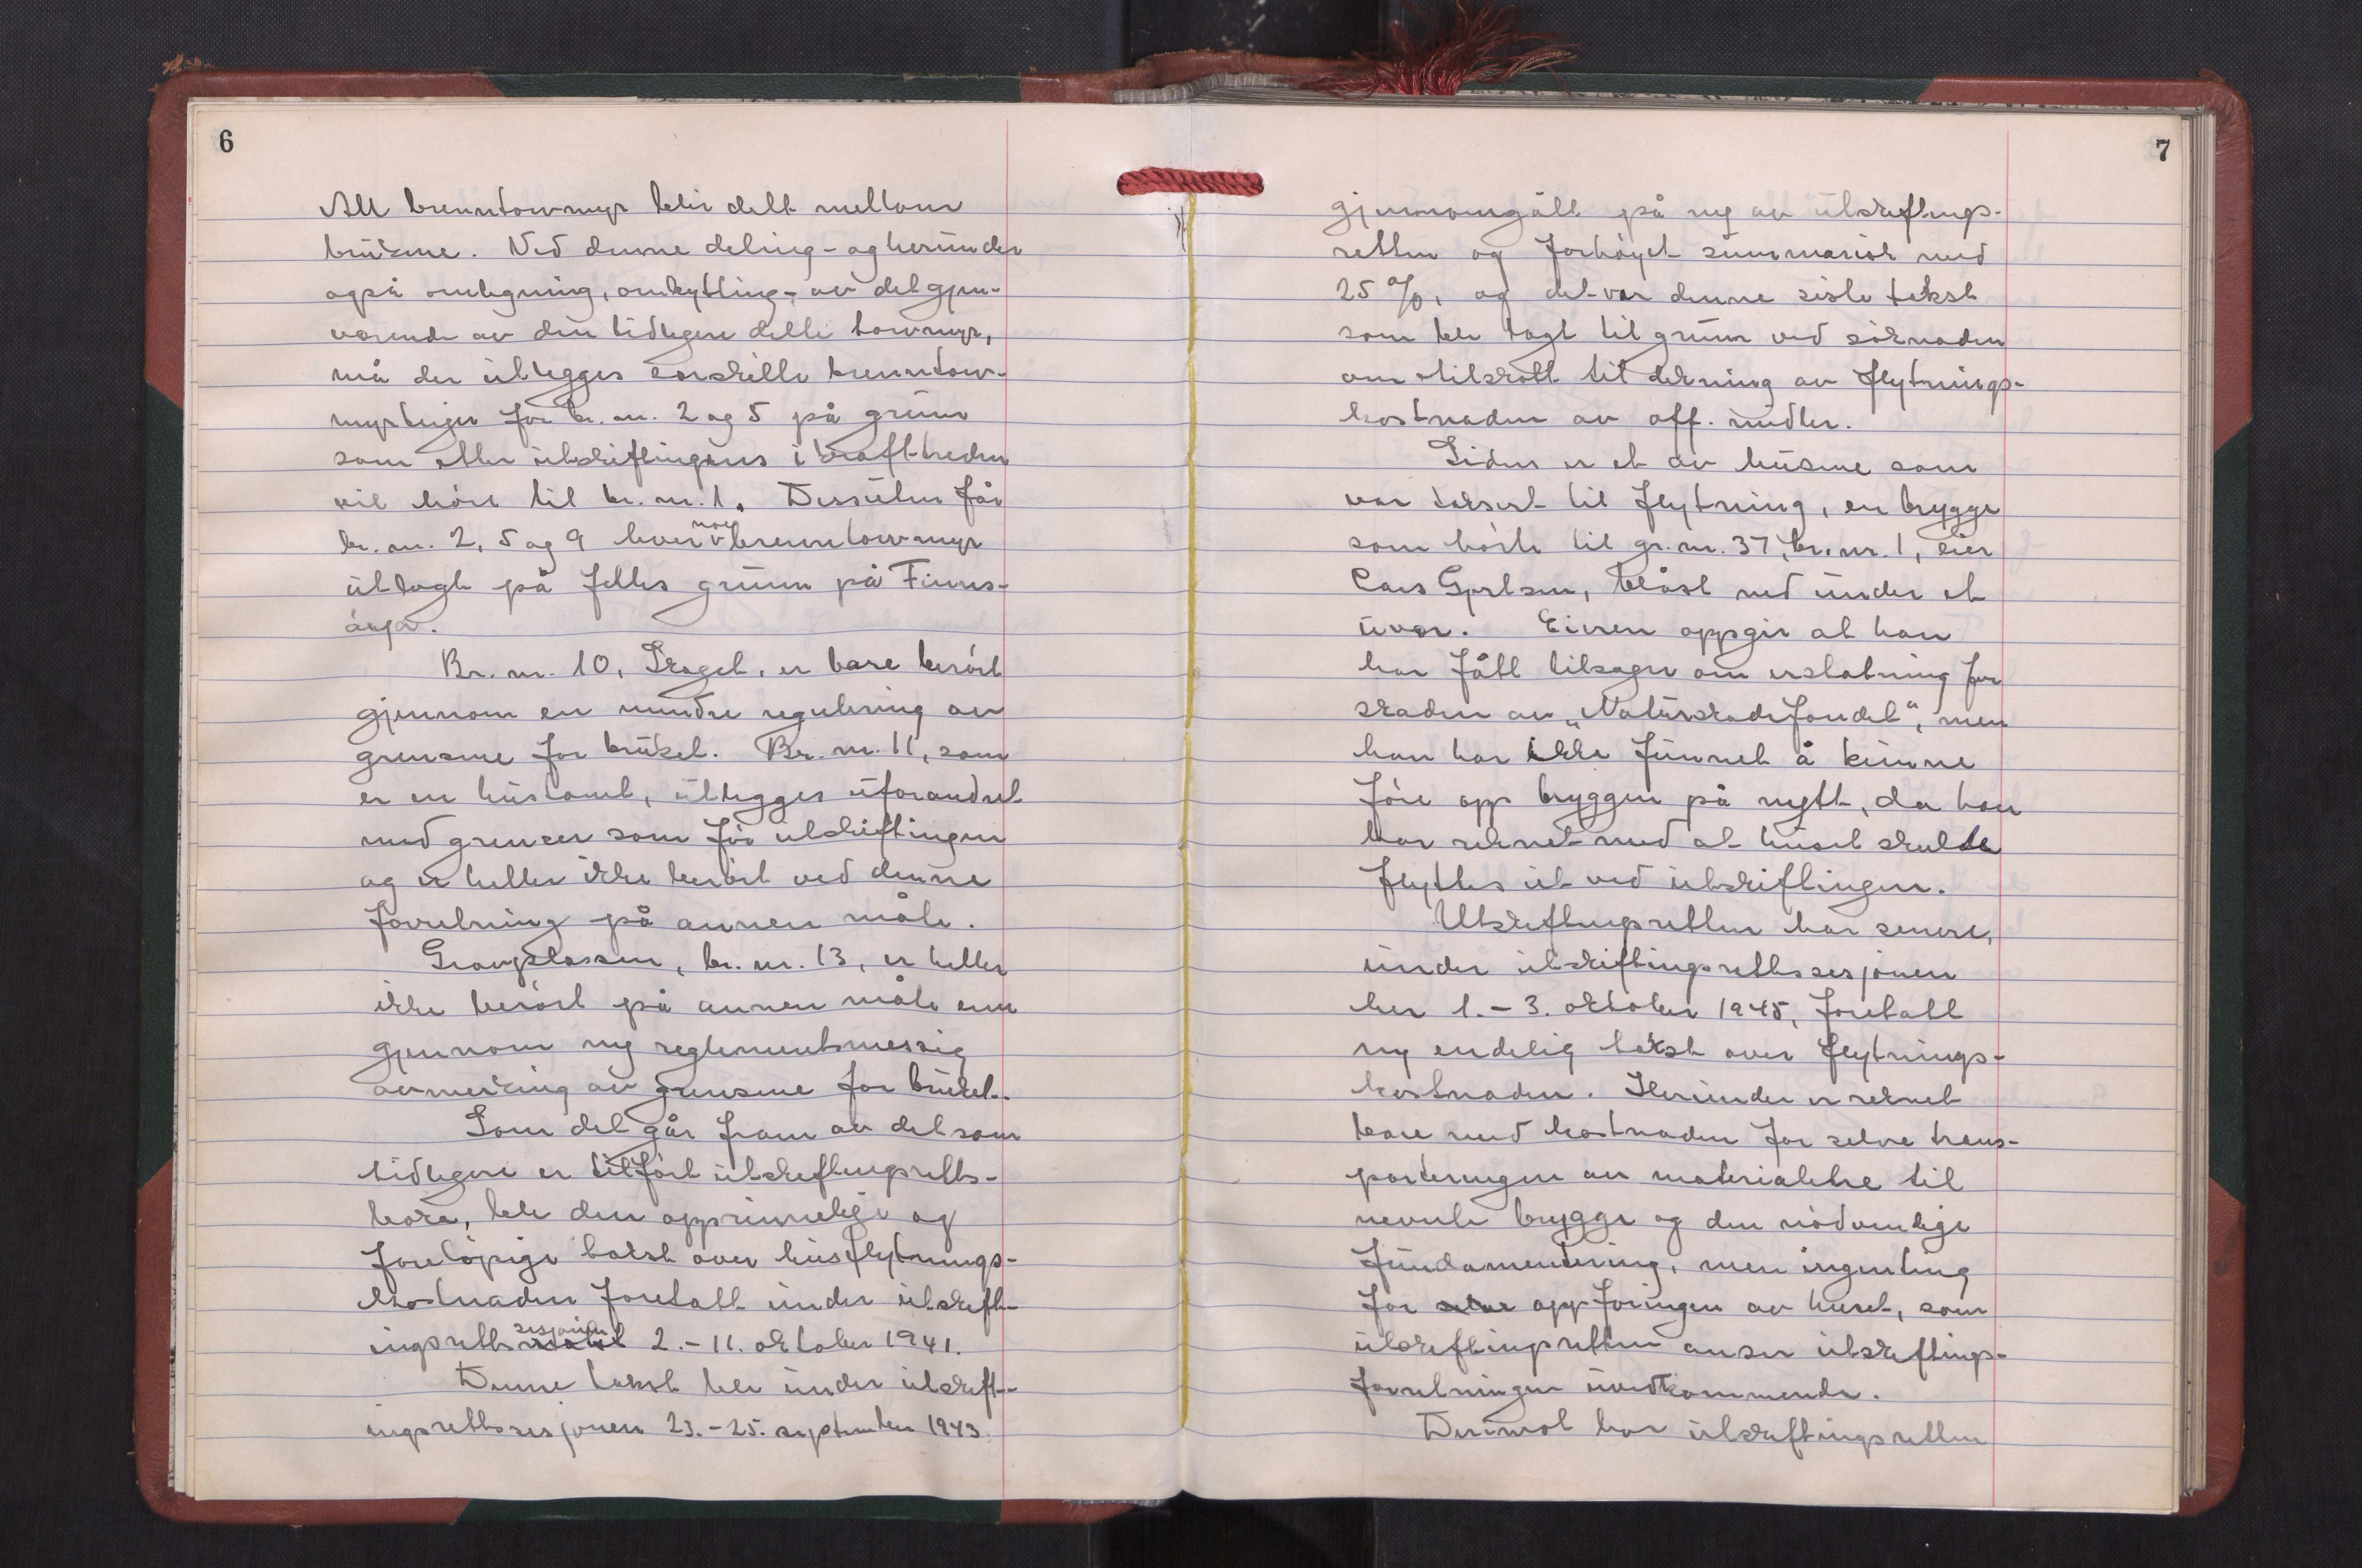 6
All brenntorvmyr blir delt mellom
brukene. Ved denne deling - og herunder
også omlegning, ombytting - av det gjen-
værende av den tidligere delte torvmyr,
må der utlegges særskilte brenntorv-
myrteiger for br. nr. 2 og 5 på grunn
som etter utskiftingens ikrafttreden
vil höre til br. nr. 1. Dessuten får
br. nr. 2, 5 og 9 hver noe brenntorvmyr
utlagt på felles grunn på Finns-
Br. nr. 10, Skaget, er bare berört
gjennom en mindre regulering av
grensene for bruket. Br. nr. 11, som
er en hustomt, utlegges uforandret
med grenser som för utskiftingen
og er heller ikke berört ved denne
forretning på annen måte.
Gravplassen, br. nr. 13, er heller
ikke berört på annen måte enn
gjennom ny reglementsmessig
avmerking av grensene for bruket.
Som det går fram av det som
tidligere er tilfört utskiftingsretts-
boka, ble den opprinnelige og
forelöpige takst over husflytnings-
kostnaden foretatt under utskift-
ingsretts sesjonen 2.-11. oktober 1941.
Denne takst ble under utskift-
ingsrettssesjonen 23.-25. september 1943
7
gjennomgått på ny av utskiftings-
retten og forhöyet summarisk med
25 %, og det var denne siste takst
som ble lagt til grunn ved söknaden
om tilskott til dekning av flytnings-
kostnaden av off. midler.
Siden er et av husene som
var taksert til flytning, en brygge
som hörte til gr. nr. 37, br. nr. 1, eier
Lars Gjertsen, blåst ned under et
uvær. Eieren oppgir at han
har fått tilsagn om erstatning for
skaden av „Naturskadefondet“, men
han har ikke funnet å kunne
före opp bryggen på nytt, da han
har reknet med at huset skulle
flyttes ut ved utskiftingen.
Utskiftingsretten har senere,
under utskiftingsrettssesjonen
her 1.-3. oktober 1945, foretatt
ny endelig takst over flytnings-
kostnaden. Herunder er reknet
bare med kostnaden for selve trans-
porteringen av materialene til
nevnte brygge og den nödvendige
fundamentering, men ingenting
for selve oppföringen av huset, som
utskiftingsretten anser utskiftings-
forretningen uvedkommende.
Derimot har utskiftingsretten